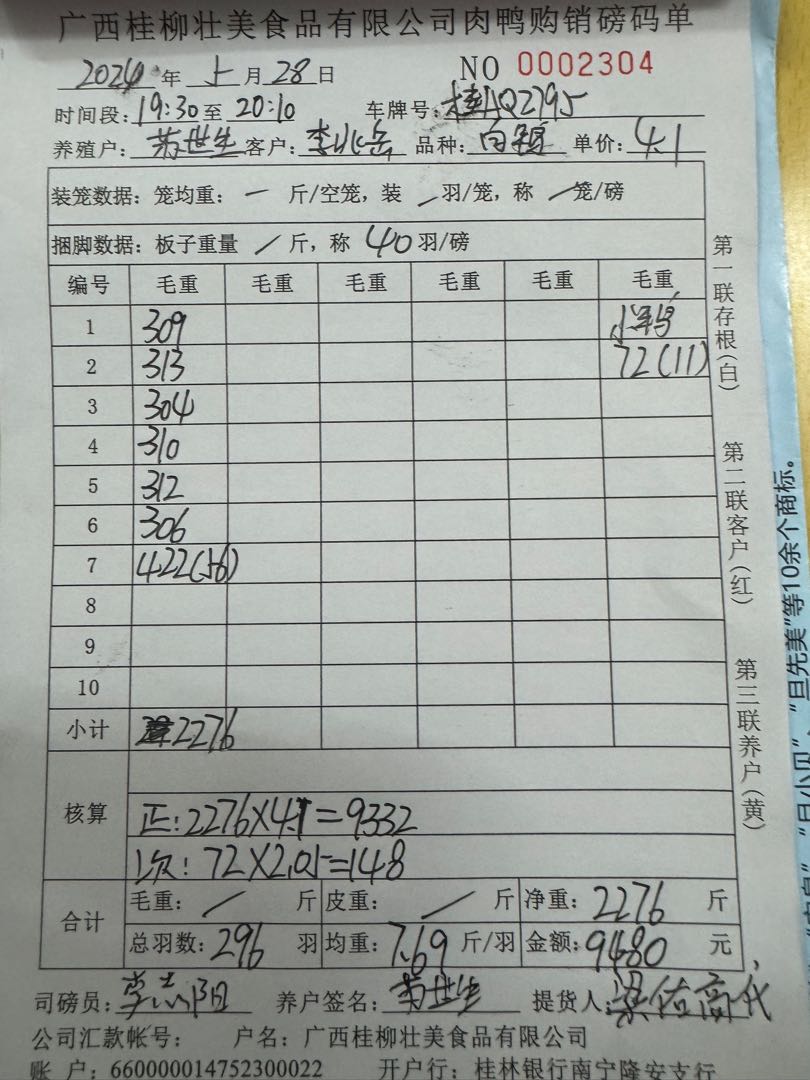 广西桂柳壮美食品有限公司肉鸭购销磅码单
2024年 5月28日 NO 0002304
时间段:19:30至20:10 车牌号:桂AQ2795
养殖户: 世生 客户:李兆岳 品种:白 单价:4.1
装笼数据:笼均重: 一 斤/空笼,装 / 羽/笼,称 /笼/磅
捆脚数据:板子重量 / 斤,称 40 羽/磅
编号 毛重 毛重 毛重 毛重 毛重 毛重
1 309 小鸭
2 313 72(11)
3 304
4 310
5 312
6 306
7 422(56)
8
9
10
小计 2276
核算
正:2276X4.1=9332
次:72X2.05=148
合计
毛重: / 斤 皮重: / 斤 净重: 2276 斤
总羽数:296 羽 均重:7.69 斤/羽 金额:9480 元
司磅员:李志阳 养户签名: 世生 提货人:梁佑商代
公司汇款帐号: 户名:广西桂柳壮美食品有限公司
账 户:660000014752300022 开户行:桂林银行南宁隆安支行
第一联存根(白)
第二联客户(红)
第三联养户(黄)
"旦先美"等10余个商标。